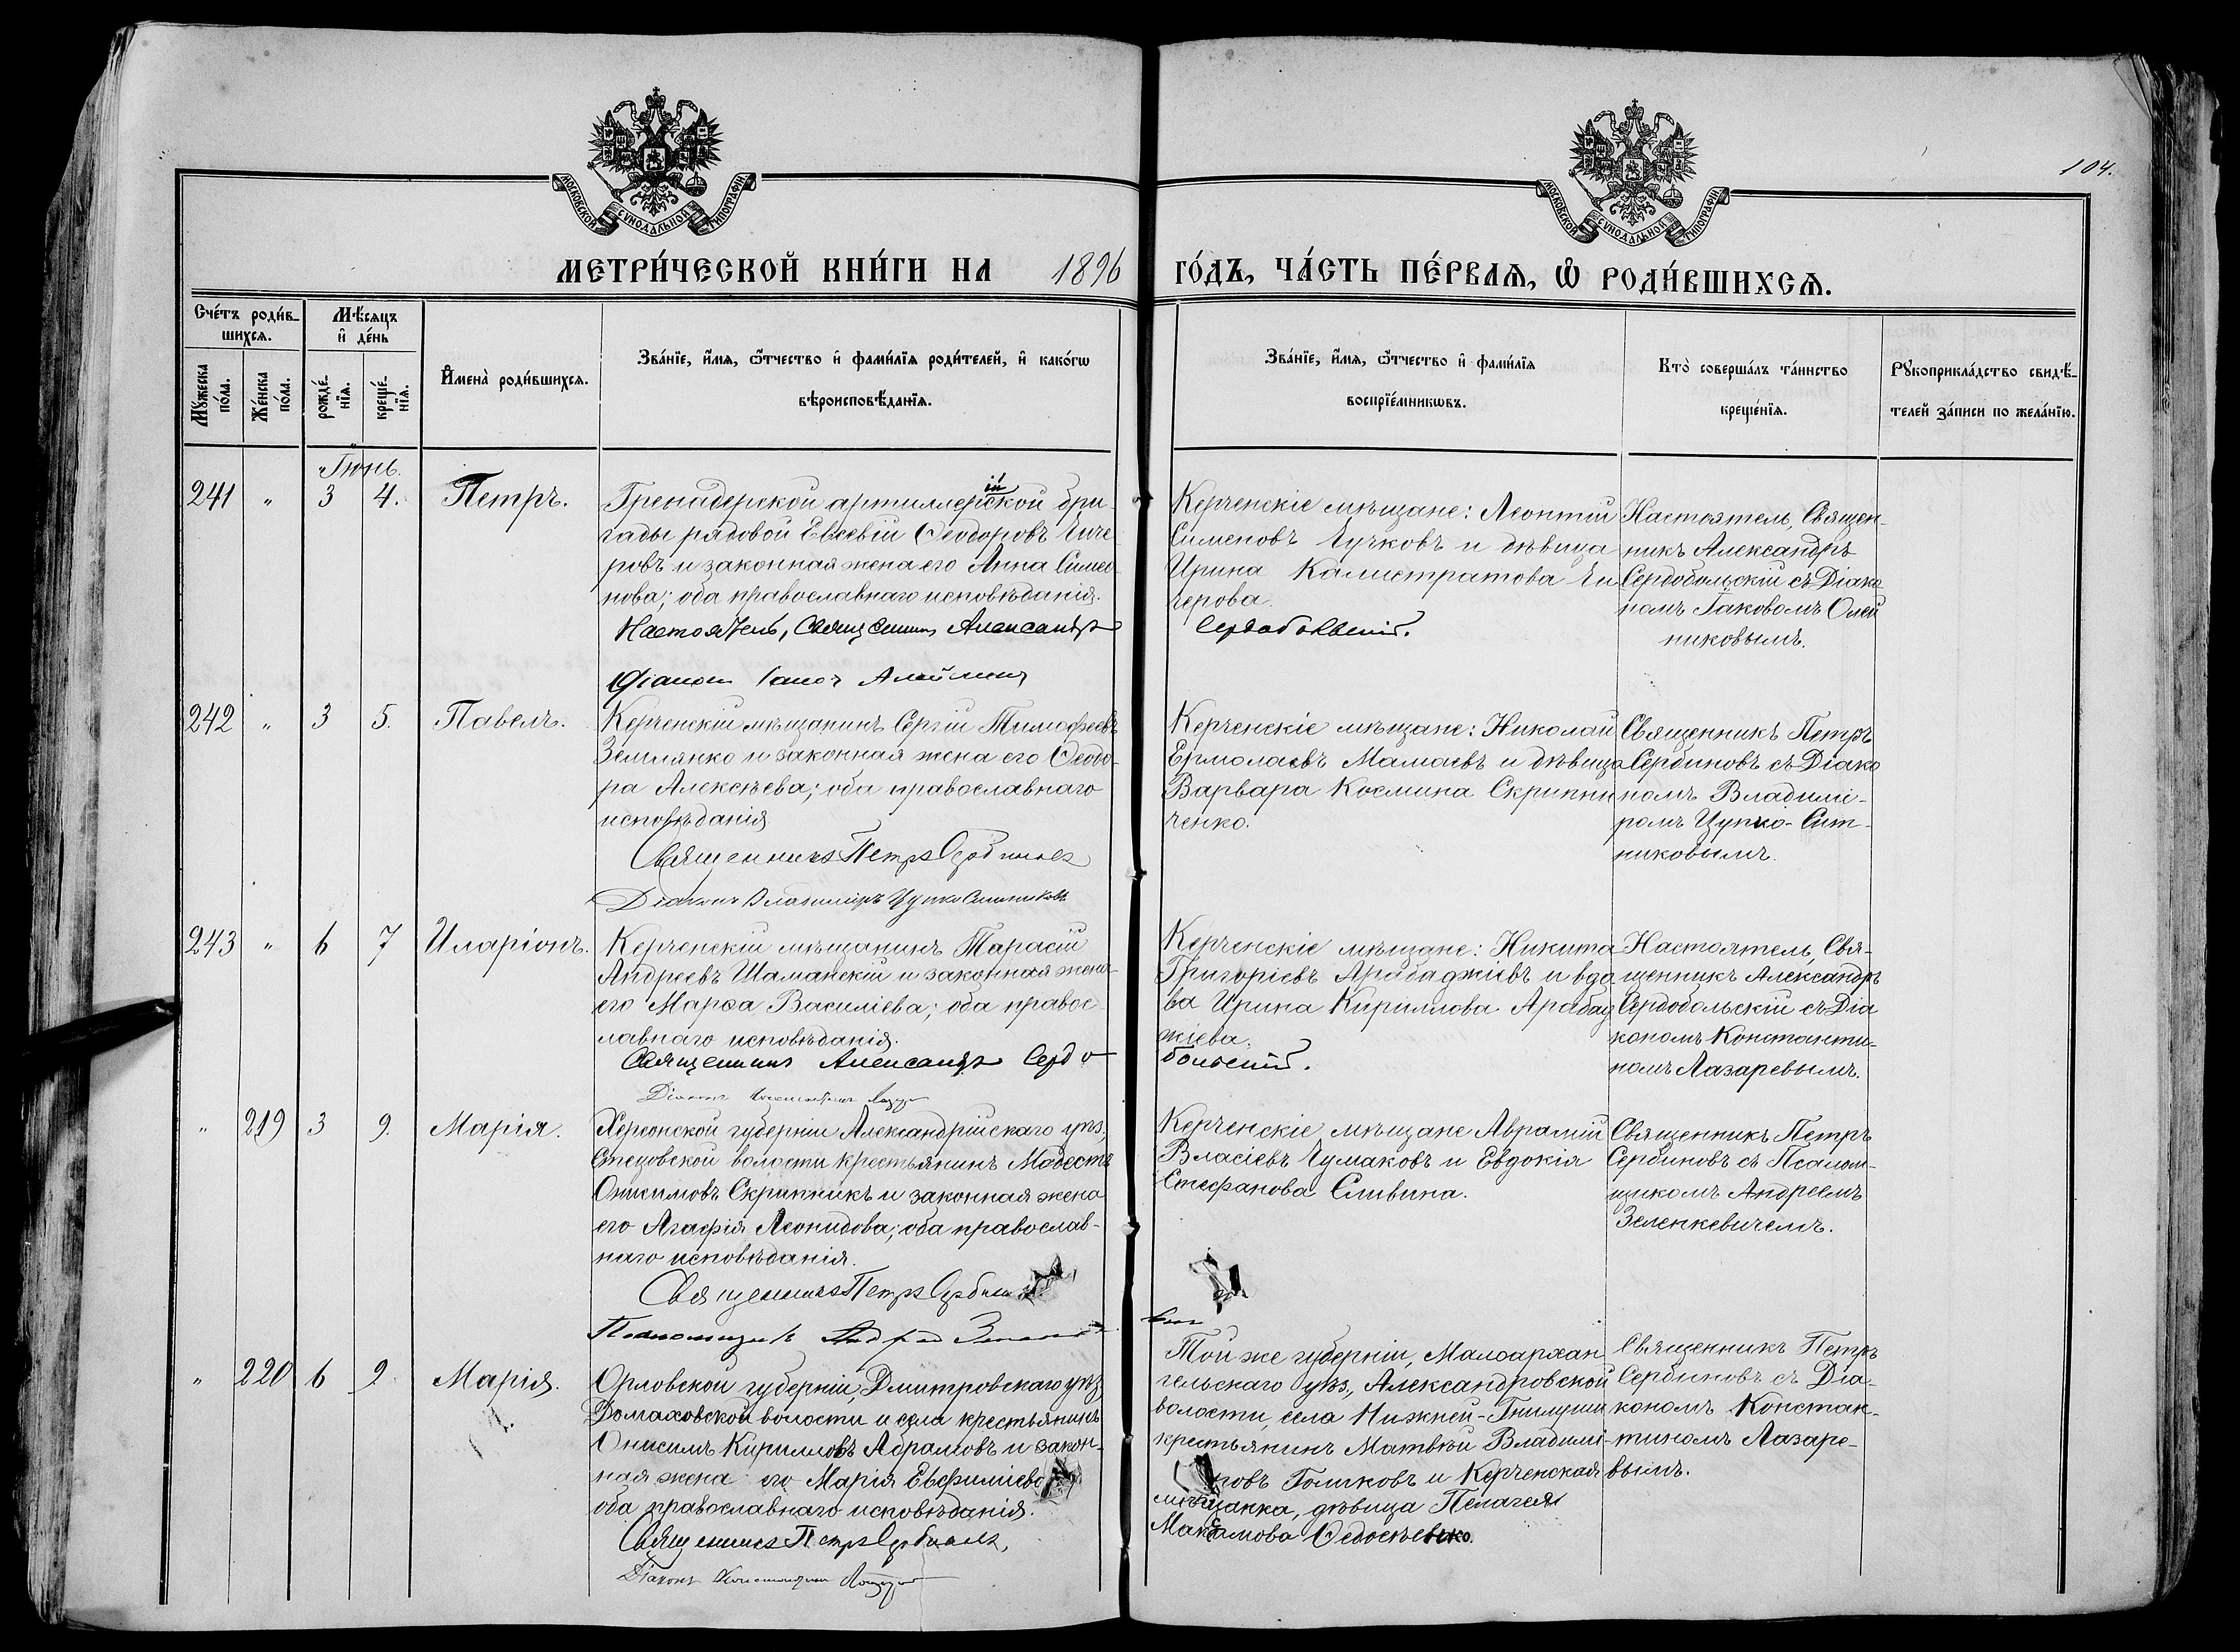 104.
МОСКОВСКОЙ СѴНОДАЛЬНОЙ ТИПОГРАФІИ
МОСКОВСКОЙ СѴНОДАЛЬНОЙ ТИПОГРАФІИ
МЕТРИ́ЧЕСКОЙ КНИ́ГИ НА 1896 ГО́ДЪ, ЧА́СТЬ ПЕ́РВАѦ, Ѡ҆ РОДИ́ВШИХСѦ.
Сче́тъ роди́в-
шихсѧ.
Мꙋ́жеска по́ла.
Же́нска по́ла.
Мѣ́сѧцъ
и҆ де́нь
рожде́-
нїѧ.
креще́-
нїѧ.
И҆мена̀ роди́вшихсѧ.
Зва́нїе, и҆́мѧ, ѻ҆́тчество и҆ фами́лїѧ роди́телей, и҆ како́гѡ
вѣроисповѣ́данїѧ.
Зва́нїе, и҆́мѧ, ѻ҆́тчество и҆ фами́лїѧ
воспрїе́мникѡвъ.
Кто̀ соверша́лъ та́инство
креще́нїѧ.
Рꙋкоприкла́дство свидѣ́-
телей за́писи по жела́нїю.
Іюнь.
241 " 3 4. Петръ.
Гренадерской артиллерійской бри-
гады рядовой Евсевій Ѳеодоровъ
ровъ и законная жена его Анна Симео-
нова; оба православнаго исповѣданія.
Настоятель, Священникъ Александръ
Сердобольскій.
Діаконъ
Керченскіе мѣщане: Леонтій
Сименовъ Пучковъ и дѣвица
Ирина Калистратова
черова.
Настоятель, Священ-
никъ Александръ
Сердобольскій съ Діако-
номъ Іаковомъ Олей
никовымъ.
242 " 3 5. Павелъ.
Керченскій мѣщанинъ Сергій Тимофеевъ
Землянко и законная жена его Ѳеодо-
ра Алексѣева; оба православнаго
исповѣданія
Священникъ Петръ Сербиновъ
Діаконъ Владиміръ Цупко Ситниковъ
Керченскіе мѣщане: Николай
Ермолаевъ Мамаевъ и дѣвица
Варвара Космина Скрипни
ченко.
Священникъ Петръ
Сербиновъ съ Діако
номъ Владимі-
ромъ Цупко-Сит-
никовымъ.
243 " 6 7 Иларіонъ.
Керченскій мѣщанинъ Тарасій
Андреевъ Шаманскій и законная жена
его Марѳа Василіева; оба правос-
лавнаго исповѣданія.
Священникъ Александръ Сердо-
больскій.
Діаконъ Константинъ
Керченскіе мѣщане: Никита
Григоріевъ Арабаджіевъ и вдо
ва Ирина Кириллова Арабад
жіева.
Настоятель, Свя-
щенникъ Александръ
Сердобольскій съ Діа
кономъ Константи-
номъ Лазаревымъ.
" 219 3 9. Марія.
Херсонской губерніи Александрійскаго уѣз.,
Стецовской волости крестьянинъ Модестъ
Онисимовъ Скрипникъ и законная жена
его Агафія Леонидова; оба православ-
наго исповѣданія.
Священникъ Петръ
Псаломщикъ Андрей
Керченскіе мѣщане Аврамій
Власіевъ Чумаковъ и Евдокія
Стефанова Сливина.
Священникъ Петръ
Сербиновъ съ Псалом-
щикомъ Андреемъ
Зеленкевичемъ.
" 220 6 9. Марія.
Орловской губерніи, Дмитровскаго уѣз.
Домаховской волости и села крестьянинъ
Онисимъ Кирилловъ Абрамовъ и закон-
ная жена его Марія Евфиміева
оба православнаго исповѣданія.
Священникъ Петръ Сербиновъ,
Діаконъ Константинъ
Той же губерніи, Малоархан
гельскаго уѣз., Александровской
волости, села Нижней-Гнилуши
крестьянинъ Матвѣй Владимі-
ровъ Голиковъ и Керченская
мѣщанка, дѣвица Пелагея
Максимова Ѳедосѣенко.
Священникъ Петръ
Сербиновъ съ Діа-
кономъ Констан-
тиномъ Лазаре-
вымъ.